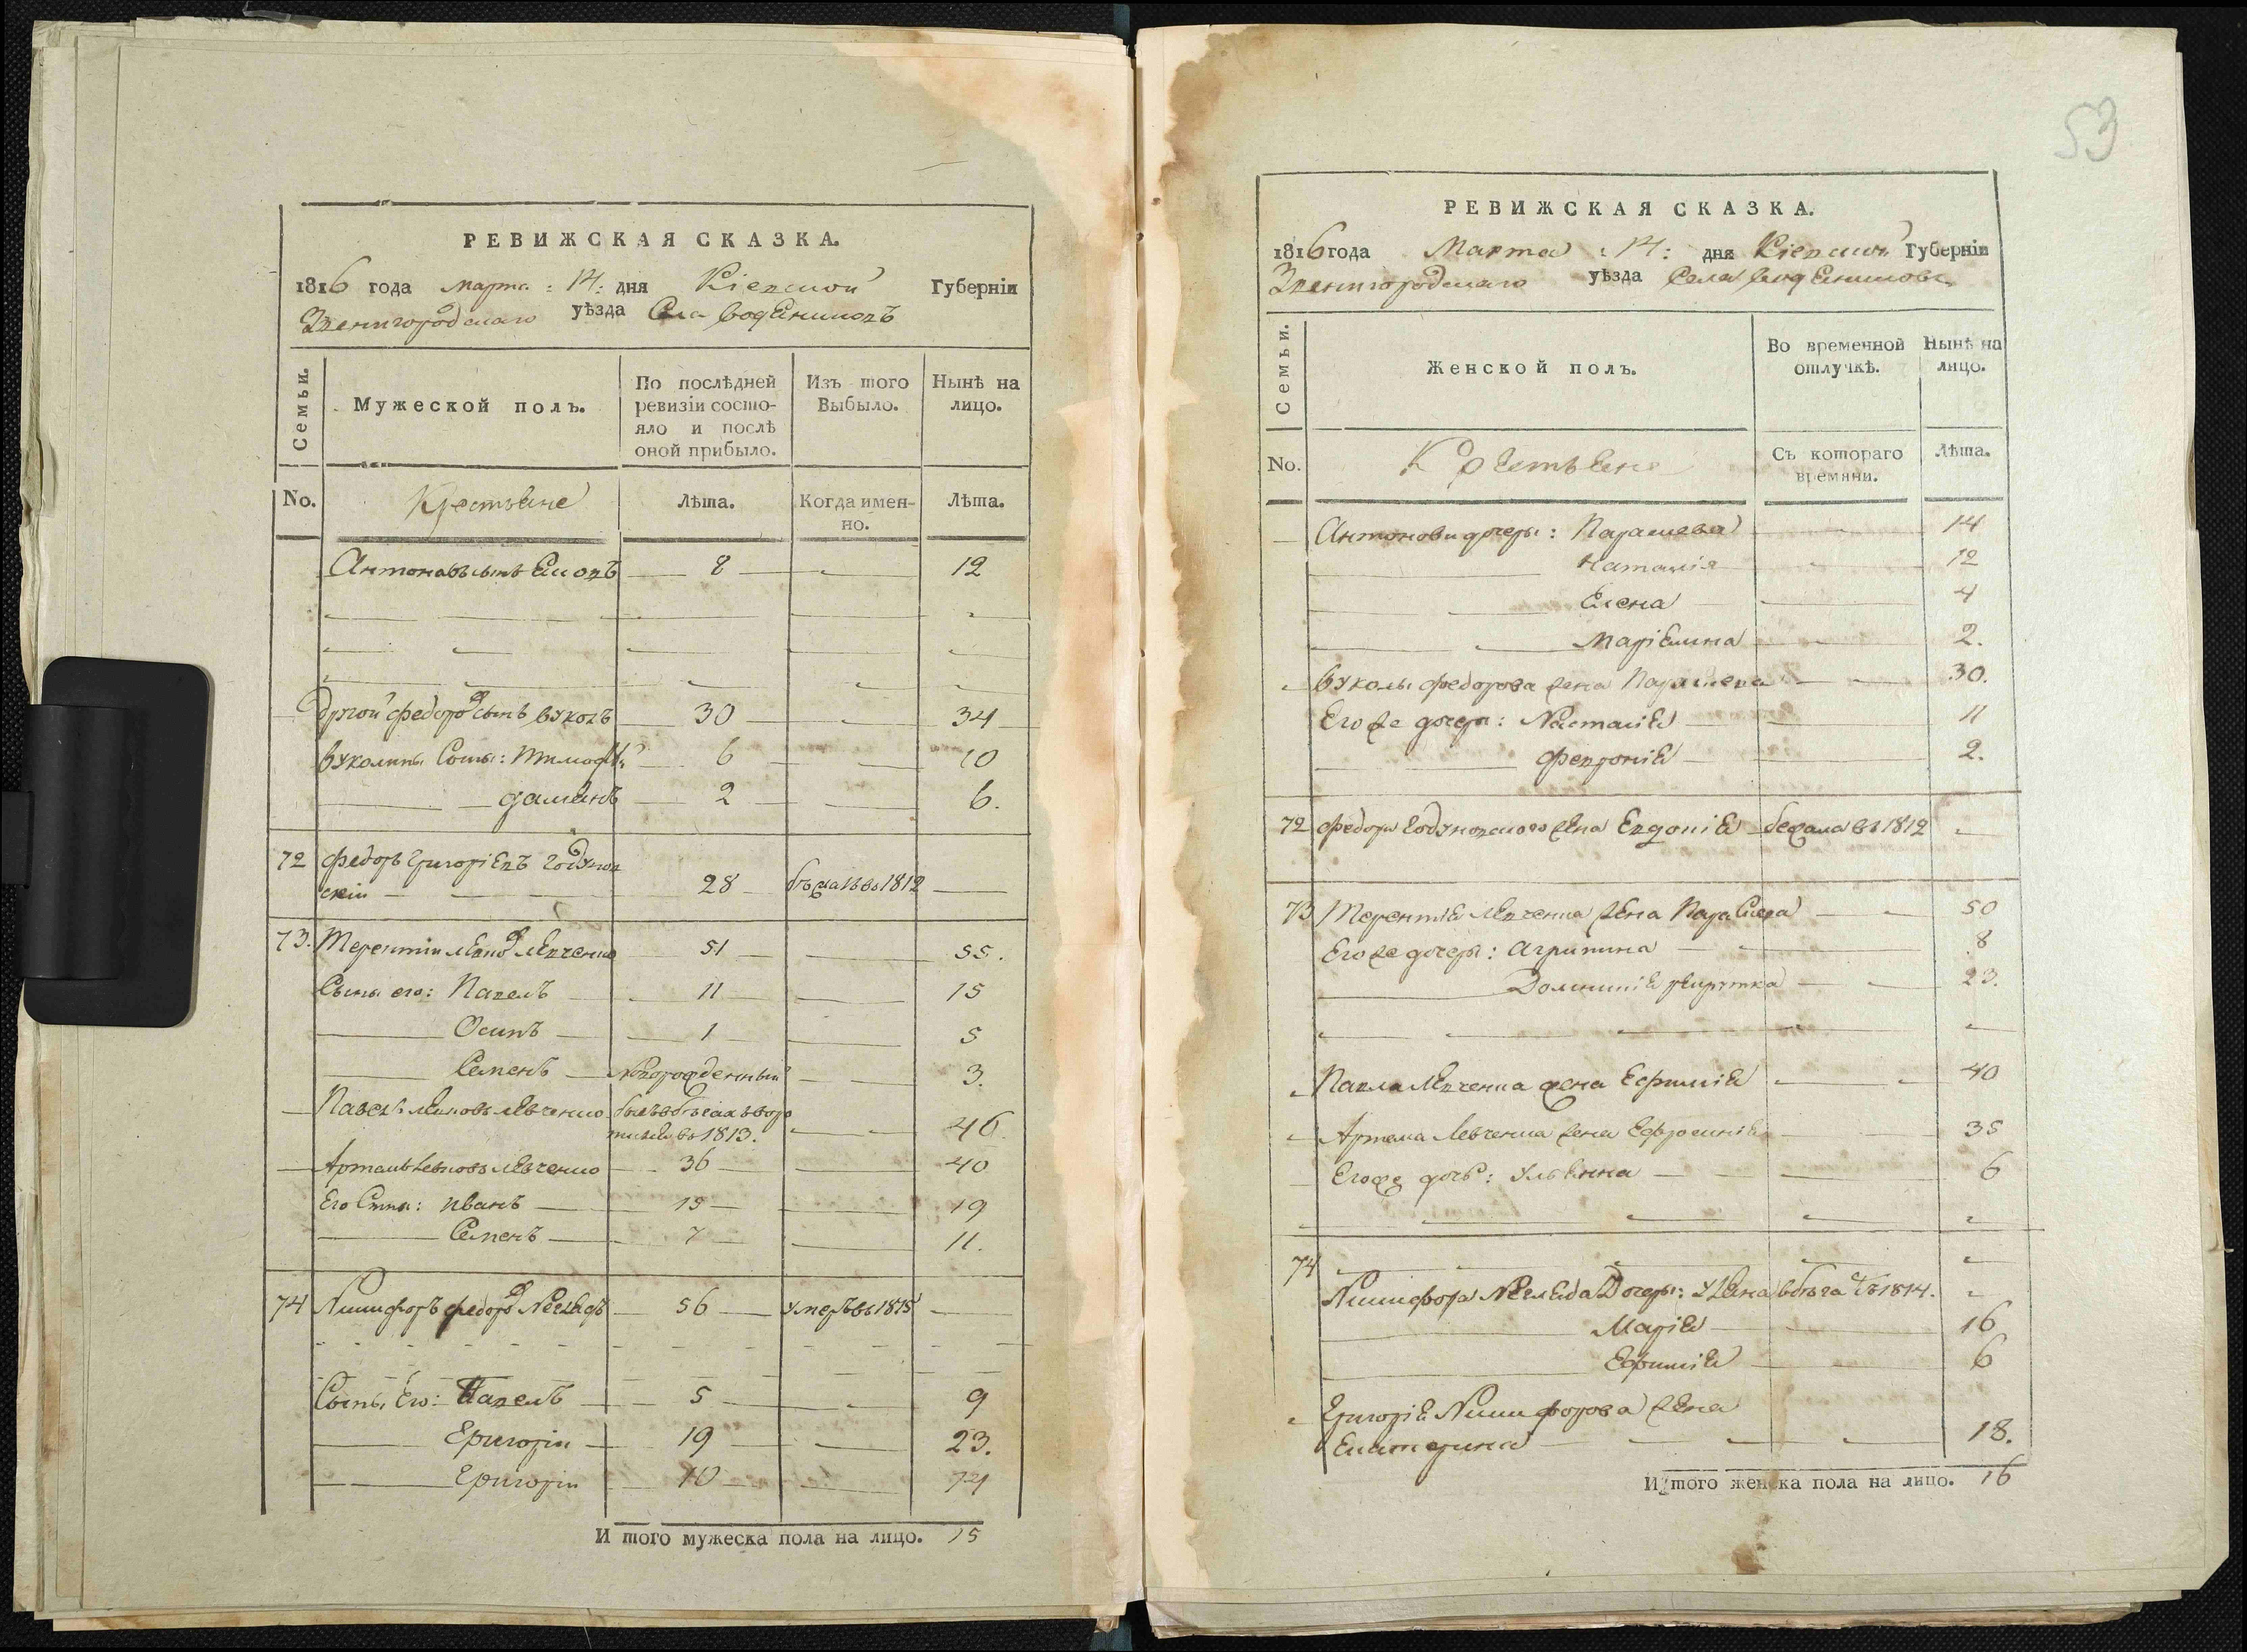 РЕВИЖСКАЯ СКАЗКА.
1816 года марта 14: дня Кіевской Губерніи
Звенигородскаго уѣзда Села
Семьи.
Мужеской полъ.
По послѣдней ревизіи состояло и послѣ оной прибыло.
Изъ того Выбыло.
Нынѣ на лицо.
No.
Крестьяне
Лѣта.
Когда именно.
Лѣта.
Антоновъ сынъ 8 12
другой федоровъ сынъ вуколъ 30 34
Вуколины Сыны: Тимофѣй 6 10
дамианъ 2 6.
72 федоръ григоріевъ
скій 28 бѣжалъ въ 1812
73. Терентіи Левченко 51 55.
Сыны его: Павелъ 11 15
Осипъ 1 5
Семенъ новорожденный 3.
Павелъ Левченко былъ в бѣгахъ воро
тился въ 1813. 46
Артемъ Левченко 36 40
Его Сыны: иванъ 15 19
Семенъ 7 11.
74 Никифоръ федоровъ 56 умеръ въ 1815
Сыны Его: Павелъ 5 9
Григоріи 19 23.
Григоріи 10 14
И того мужеска пола на лицо. 15
53
РЕВИЖСКАЯ СКАЗКА.
1816 года Марта 14: дня Кіевской Губерніи
Звенигородскаго уѣзда Села
Семьи.
Женской полъ.
Во временной отлучкѣ.
Нынѣ на лицо.
No.
Крестьяне
Съ котораго времяни.
Лѣта.
Антонови дочеры: Параскева 14
Наталія 12
Елена 4
Маріянна 2.
Вуколы федорова жена Параскева 30.
Его же дочеры: Наталія 11
февронія 2.
72 федора жена Евдокія бежала въ 1812
73 Терентія Левченка жена Параскева 50
Его же дочеры: агрипина 8
Домникія 23.
Павла Левченка жена Ефимія 40
Артема Левченка жена Ефросинія 35
Его же дочь: Ульянна 6
74
Никифора Дочеры: 1814.
Марія 16
Ефимія 6
Григорія Никифорова жена
Екатерина 18.
И того женска пола на лицо. 16